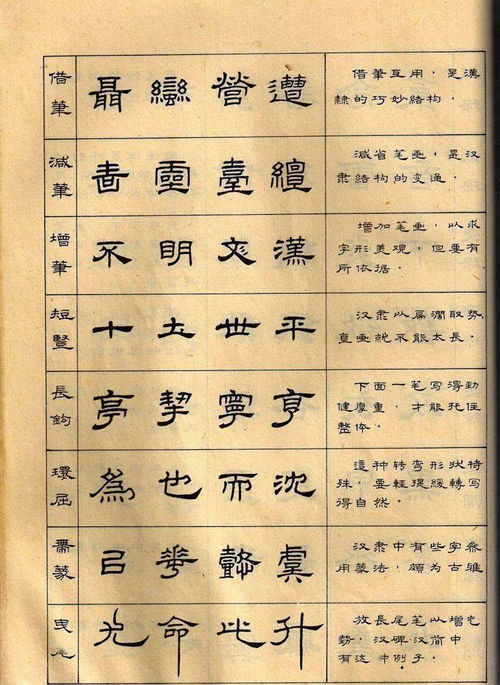 借筆
聶 蠻 營 遭
借筆互用，是漢
隸的巧妙結构．
減筆
書 靈 臺 纏
減省笔画，是汉
隶結构的变通．
增筆
不 明 漢
增加笔画，以求
字形美观，但要有
所依据．
短豎
十 土 世 平
汉隶以扁濶取势，
直画就不能太長．
長鈎
亭 挈 寧 亨
下面一笔写得劲
健厚重，才能托住
整体．
環屈
為 也 而 沈
這种转弯形状特
殊，要轻提緩轉写
得自然．
兼篆
已 華 懿 虞
汉隶中，有些字参
用篆法，頗为古雅
曳尾
光 命 此 升
放長尾笔以增之
勢，汉碑汉简中
有这种例子．